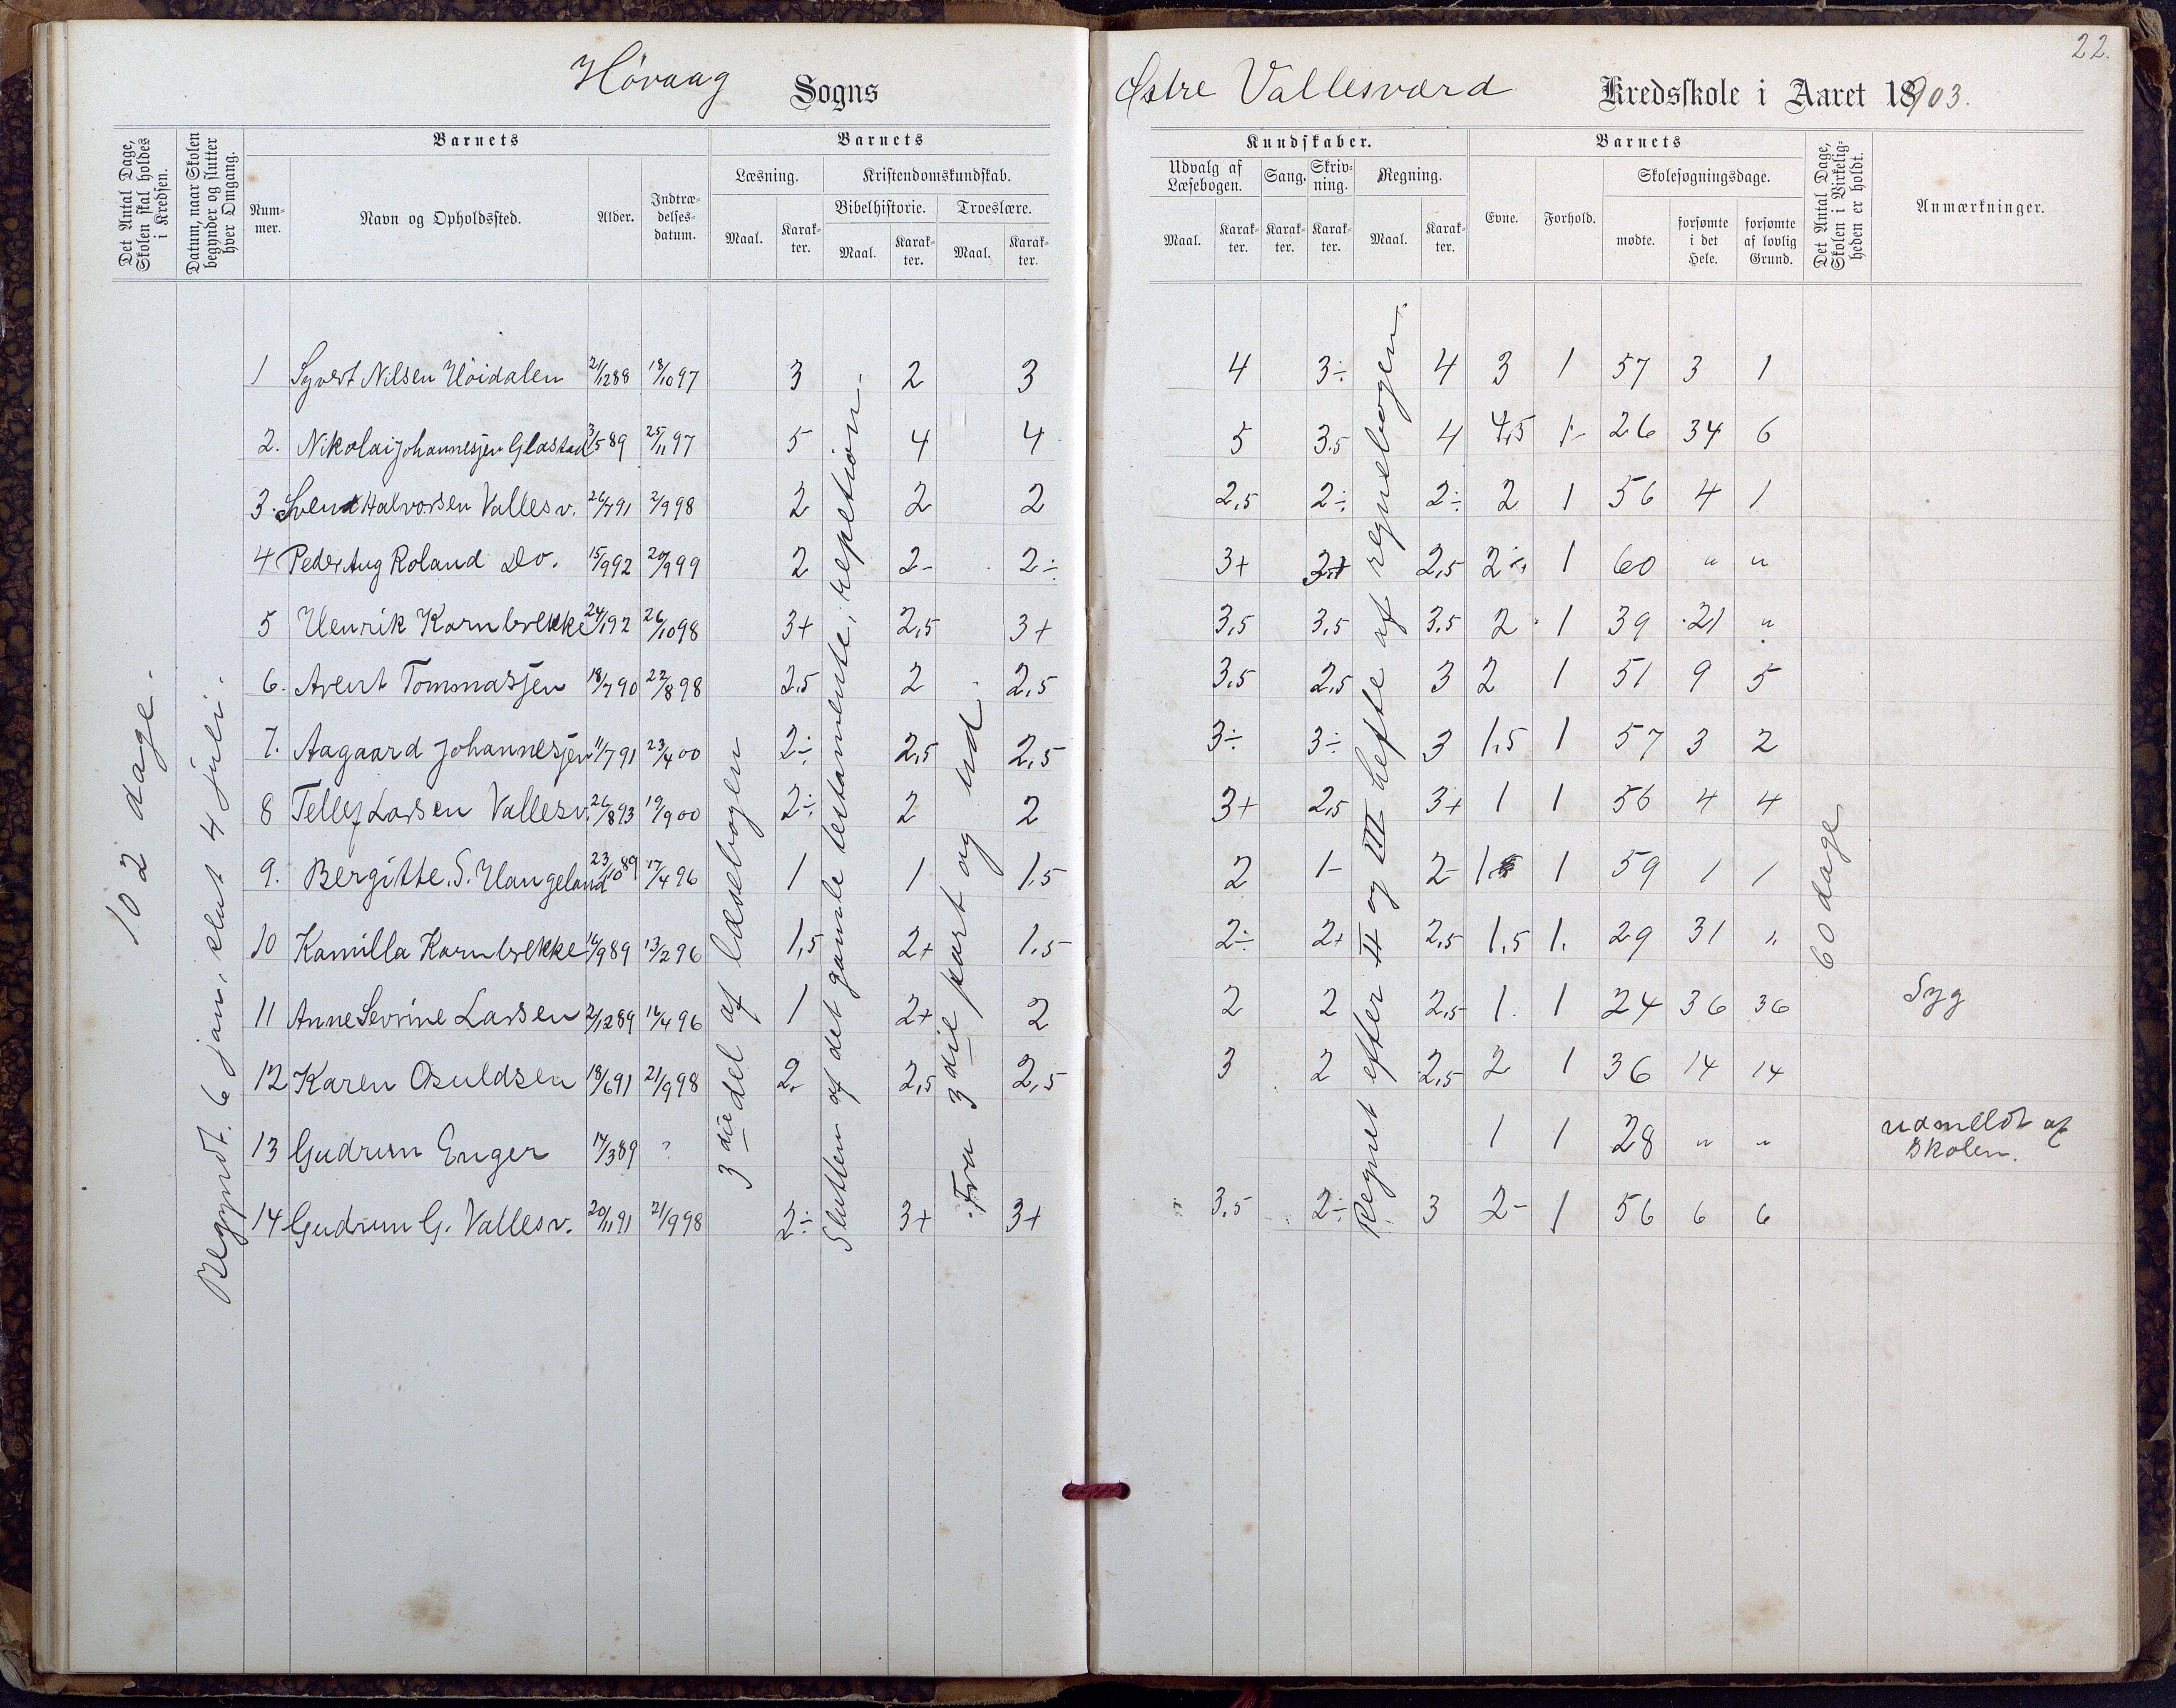 22.
Høvaag Sogns
Østre Vallesværd Kredsskole i Aaret 1903.
Det Antal Dage, Skolen skal holdes i Kredsen.
Datum, naar Skolen begynder og slutter hver Omgang.
Barnets
Nummer.
Navn og Opholdssted.
Alder.
Indtrædelsesdatum.
Barnets
Læsning.
Kristendomskundskab.
Bibelhistorie.
Troeslære.
Maal.
Karakter.
Maal.
Karakter.
Maal.
Karakter.
Kundskaber.
Udvalg af Læsebogen.
Sang.
Skrivning.
Regning.
Maal.
Karakter.
Karakter.
Karakter.
Maal.
Karakter.
Barnets
Evne.
Forhold.
Skolesøgningsdage.
mødte.
forsømte i det Hele.
forsømte af lovlig Grund.
Det Antal Dage, Skolen i Virkeligheden er holdt.
Anmærkninger.
102 dage.
Begyndt. 6 jan, slut 4 juli.
3die del af læsebogen
Slutten af det gamle testamente, repetition.
Fra 3die part og ud
Regnet efter II og III hefte af regnebogen.
60 dage
1 Syvert Nilsen Høidalen 21/12 88 18/10 97 3 2 3 4 3÷ 4 3 1 57 3 1
2. Nikolai Johannesjen Glastad 3/5 89 25/11 97 5 4 4 5 3.5 4 4,5 1- 26 34 6
3. Svend Halvorsen Vallesv. 26/7 91 2/9 98 2 2 2 2,5 2÷ 2÷ 2 1 56 4 1
4 Peder Aug Roland Do. 15/9 92 20/9 99 2 2- 2÷ 3+ 2+ 2,5 2÷ 1 60 " "
5 Henrik Kornbrekke 24/1 92 26/10 98 3+ 2,5 3+ 3,5 3,5 3,5 2 1 39 21 "
6. Arent Tommasjen 18/7 90 22/8 98 2,5 2 2,5 3,5 2,5 3 2 1 51 9 5
7. Aagaard Johannesjen 11/7 91 23/4 00 2÷ 2,5 2,5 3÷ 3÷ 3 1,5 1 57 3 2
8 Tellef Larsen Vallesv. 26/8 93 19/9 00 2÷ 2 2 3+ 2,5 3+ 1 1 56 4 4
9. Bergitte. S. Hangeland 23/10 89 17/4 96 1 1 1,5 2 1- 2- 1 1 59 1 1
10 Kamilla Kornbrekke 16/9 89 13/2 96 1,5 2+ 1,5 2÷ 2+ 2,5 1,5 1. 29 31 "
11 Anne Sevrine Larsen 2/12 89 16/4 96 1 2+ 2 2 2 2,5 1. 1 24 36 36 Syg
12 Karen Osuldsen 18/6 91 21/9 98 2. 2,5 2,5 3 2 2,5 2 1 36 14 14
13 Gudrun Enger 14/3 89 ? 1 1 28 " " udmeldt af
Skolen.
14 Gudrun G. Vallesv. 20/11 91 21/9 98 2÷ 3+ 3+ 3,5 2÷ 3 2- 1 56 6 6